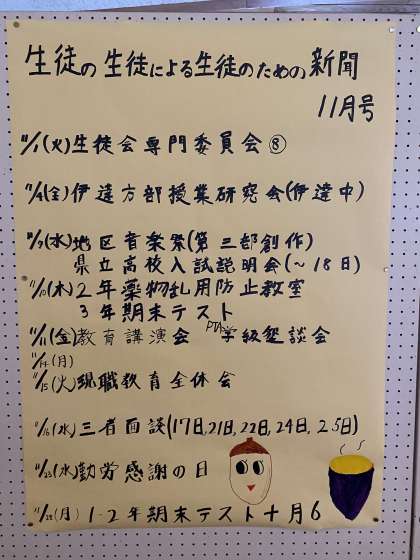 生徒の生徒による生徒のための新聞
11月号
11/1(火)生徒会専門委員会⑧
11/4(金)伊達方部授業研究会(伊達中)
11/9(水)地区音楽祭(第三部創作)
県立高校入試説明会(～18日)
11/10(木)2年薬物乱用防止教室
3年期末テスト
11/11(金)教育講演会 PTA学級懇談会
11/14(月)
11/15(火)現職教育全体会
11/16(水)三者面談(17日,21日,22日,24日,25日)
11/23(水)勤労感謝の日
11/28(月)1-2年期末テスト十月6